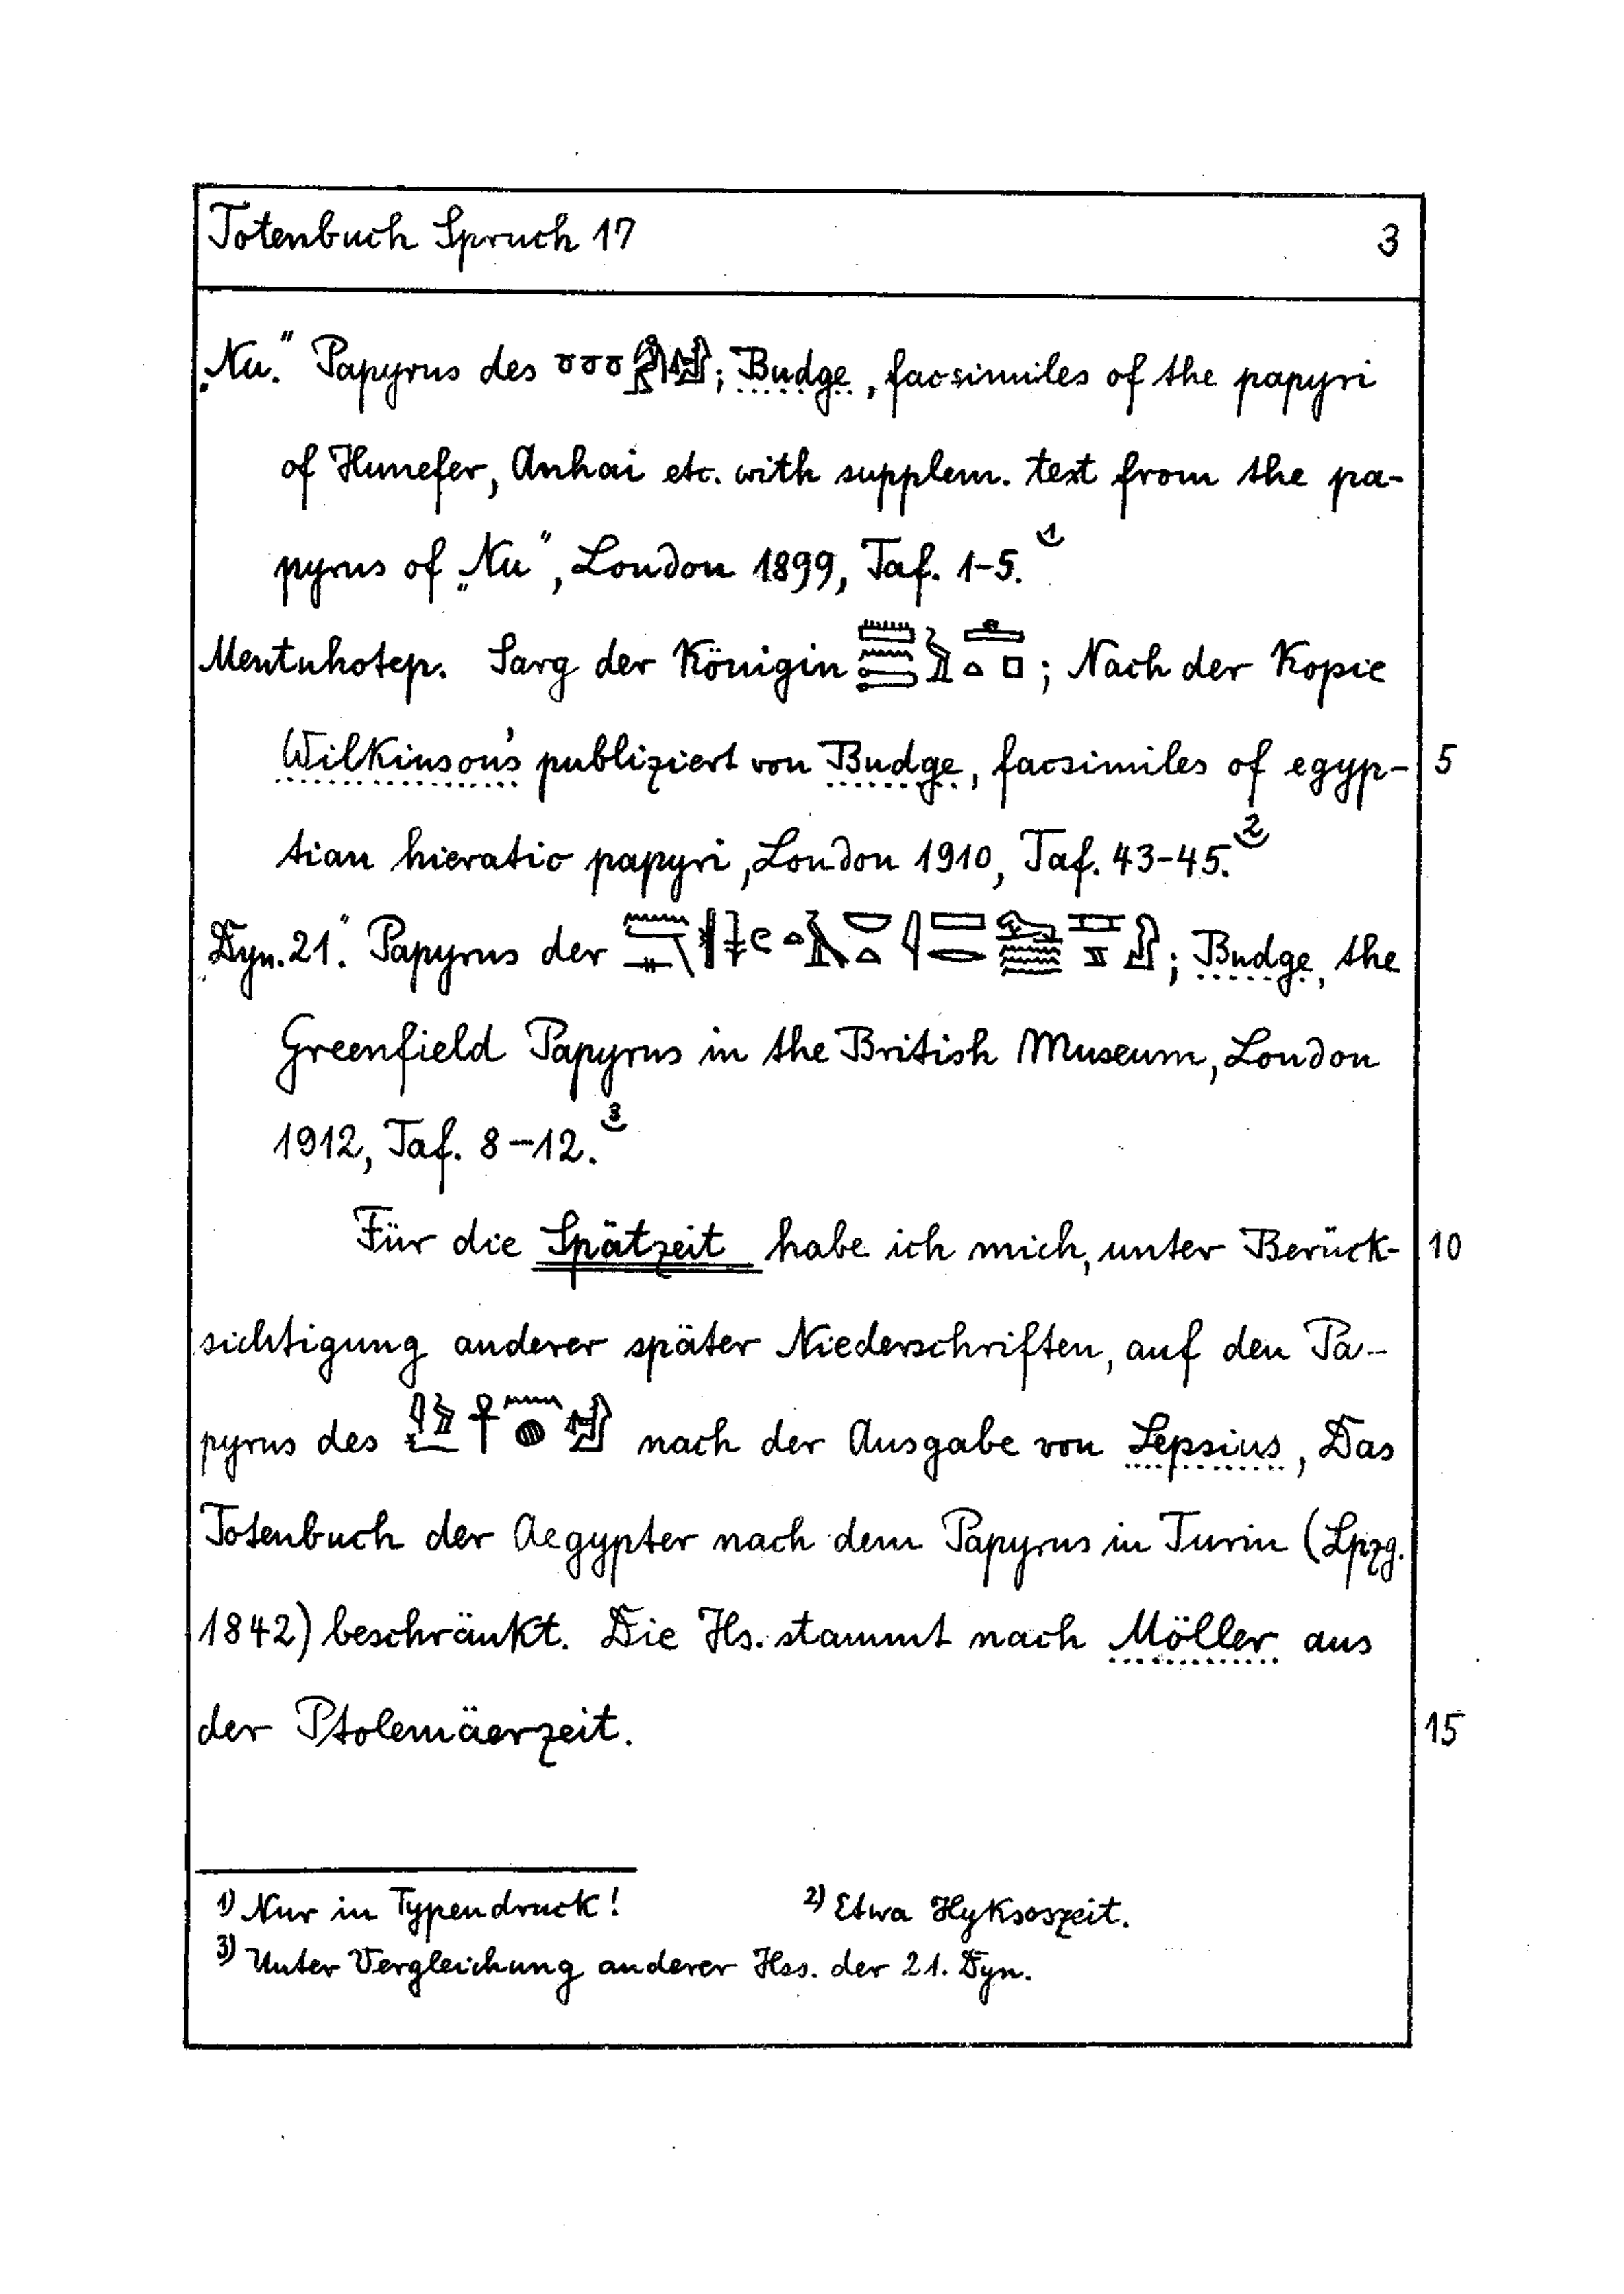 Totenbuch Spruch 17 3
„Nu.“ Papyrus des ; Budge, facsimiles of the papyri
of Hunefer, Anhai etc. with supplem. text from the pa-
pyrus of „Nu“, London 1899, Taf. 1-5. 1)
Mentuhotep. Sarg der Königin ; Nach der Kopie
Wilkinson's publiziert von Budge, facsimiles of egyp- 5
tian hieratic papyri, London 1910, Taf. 43-45. 2)
„Dyn. 21.“ Papyrus der ; Budge, the
Greenfield Papyrus in the British Museum, London
1912, Taf. 8-12. 3)
Für die Spätzeit habe ich mich, unter Berück- 10
sichtigung anderer später Niederschriften, auf den Pa-
pyrus des nach der Ausgabe von Lepsius, Das
Totenbuch der Aegypter nach dem Papyrus in Turin (Lpzg.
1842) beschränkt. Die Hs. stammt nach Möller aus
der Ptolemäerzeit. 15
1) Nur in Typendruck! 2) Etwa Hyksoszeit.
3) Unter Vergleichung anderer Hss. der 21. Dyn.